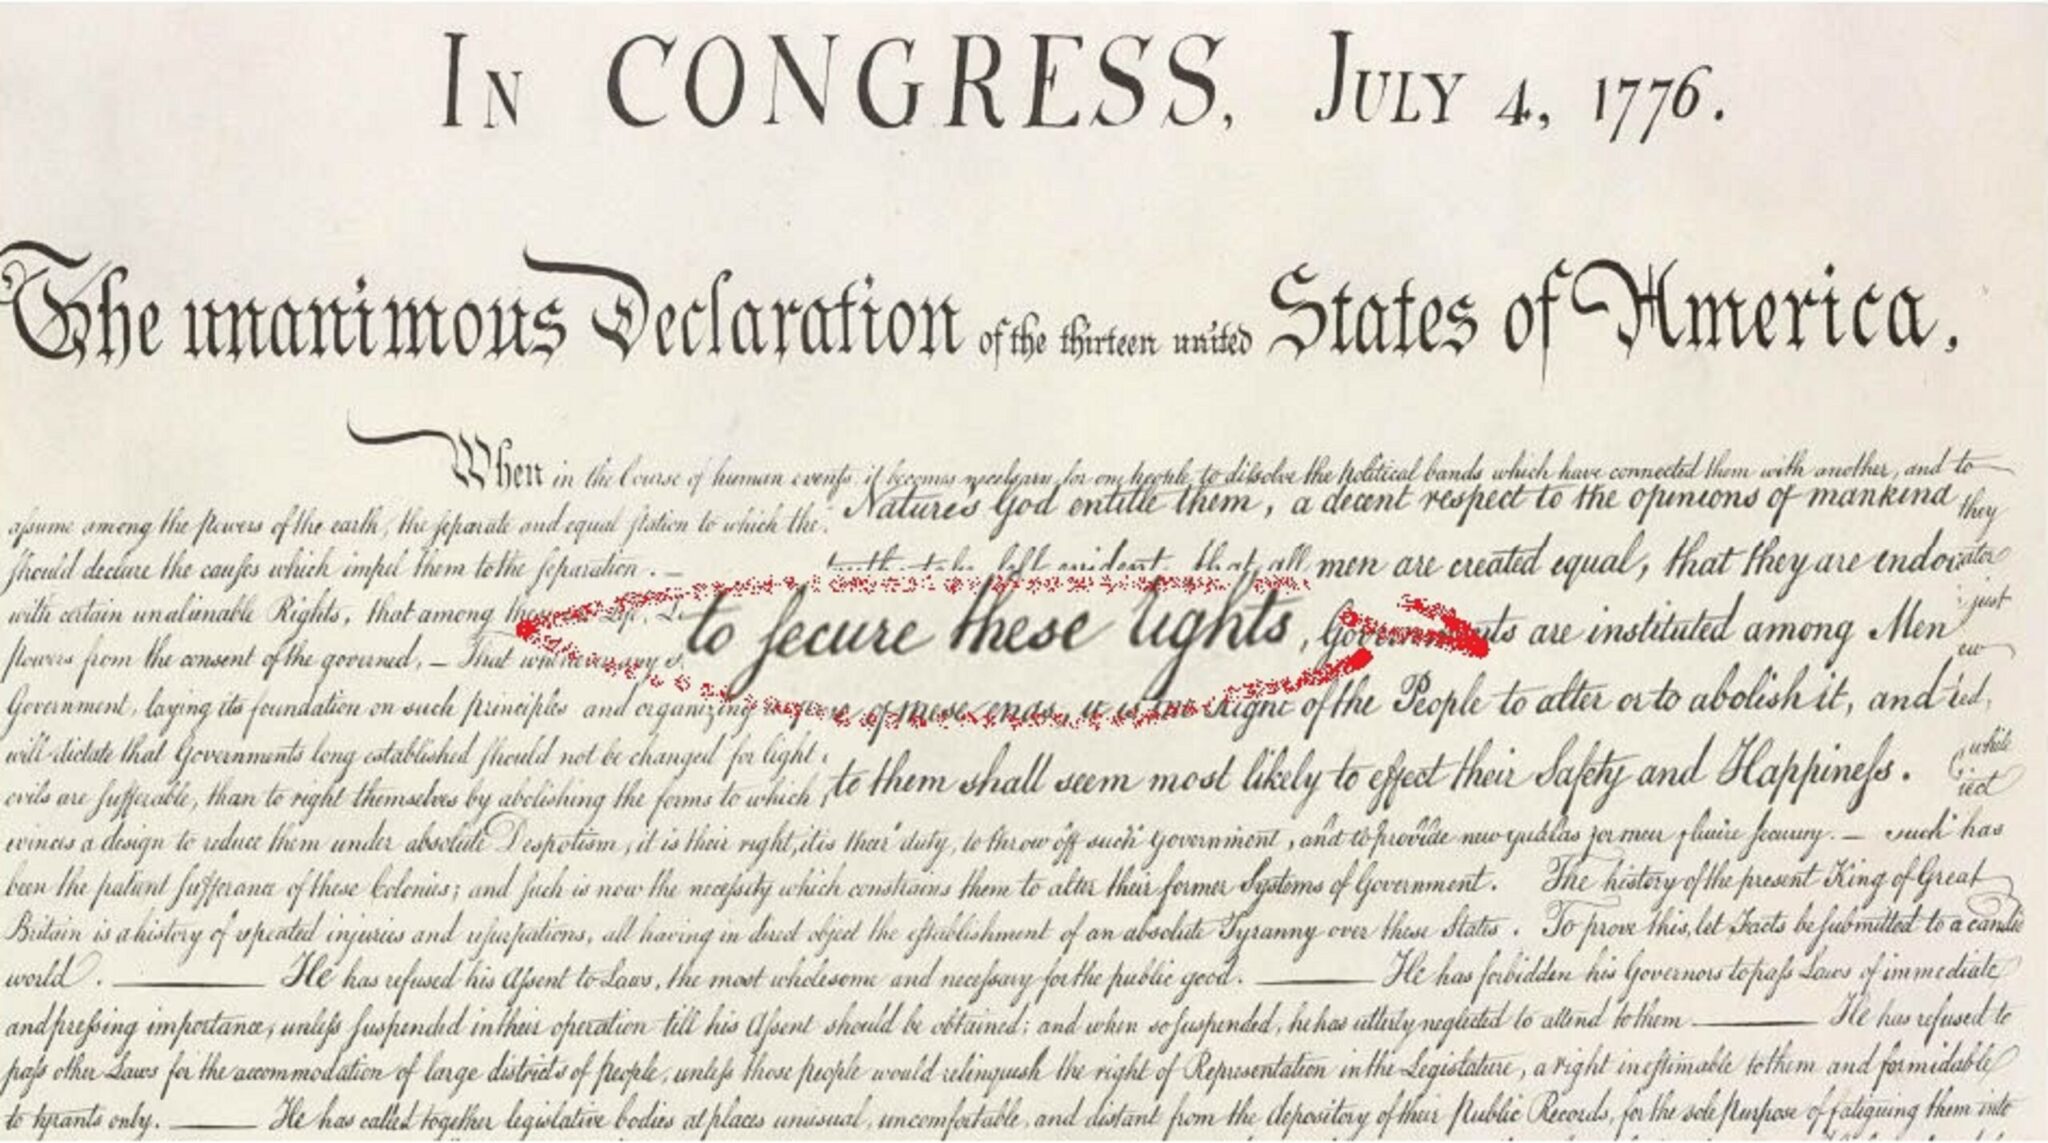 IN CONGRESS, JULY 4, 1776.
The unanimous Declaration of the thirteen united States of America,
When in the Course of human events, it becomes necessary for one people to dissolve the political bands which have connected them with another, and to
assume among the powers of the earth, the separate and equal station to which the Nature's God entitle them, a decent respect to the opinions of mankind they
should declare the causes which impel them to the separation. — that all men are created equal, that they are endo
with certain unalienable Rights, that among these Life, to secure these rights, Governments are instituted among Men just
powers from the consent of the governed, — That whenever any
Government, laying its foundation on such principles and organizing of these ends, it is the Right of the People to alter or to abolish it, and
will dictate that Governments long established should not be changed for light while
evils are sufferable, than to right themselves by abolishing the forms to which to them shall seem most likely to effect their Safety and Happiness.
evinces a design to reduce them under absolute Despotism, it is their right, it is their duty, to throw off such Government, and to provide new Guards for their future security. — Such has
been the patient sufferance of these Colonies; and such is now the necessity which constrains them to alter their former Systems of Government. The history of the present King of Great
Britain is a history of repeated injuries and usurpations, all having in direct object the establishment of an absolute Tyranny over these States. To prove this, let Facts be submitted to a candid
world. — He has refused his Assent to Laws, the most wholesome and necessary for the public good. — He has forbidden his Governors to pass Laws of immediate
and pressing importance, unless suspended in their operation till his Assent should be obtained; and when so suspended, he has utterly neglected to attend to them — He has refused to
pass other Laws for the accommodation of large districts of people, unless those people would relinquish the right of Representation in the Legislature, a right inestimable to them and formidable
to tyrants only. — He has called together legislative bodies at places unusual, uncomfortable, and distant from the depository of their Public Records, for the sole purpose of fatiguing them into